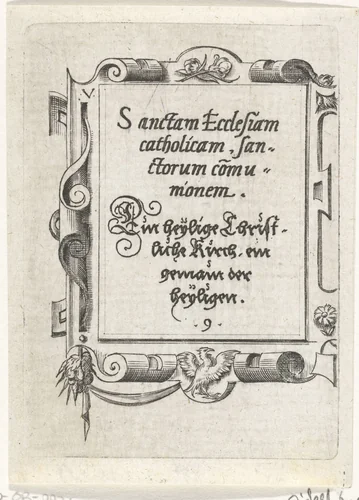 V.
Sanctam Ecclesiam
catholicam, san-
ctorum cõmu-
nionem.
Ein heÿlige Christ-
liche Kirch, ein
gemain der
heÿligen.
·9·